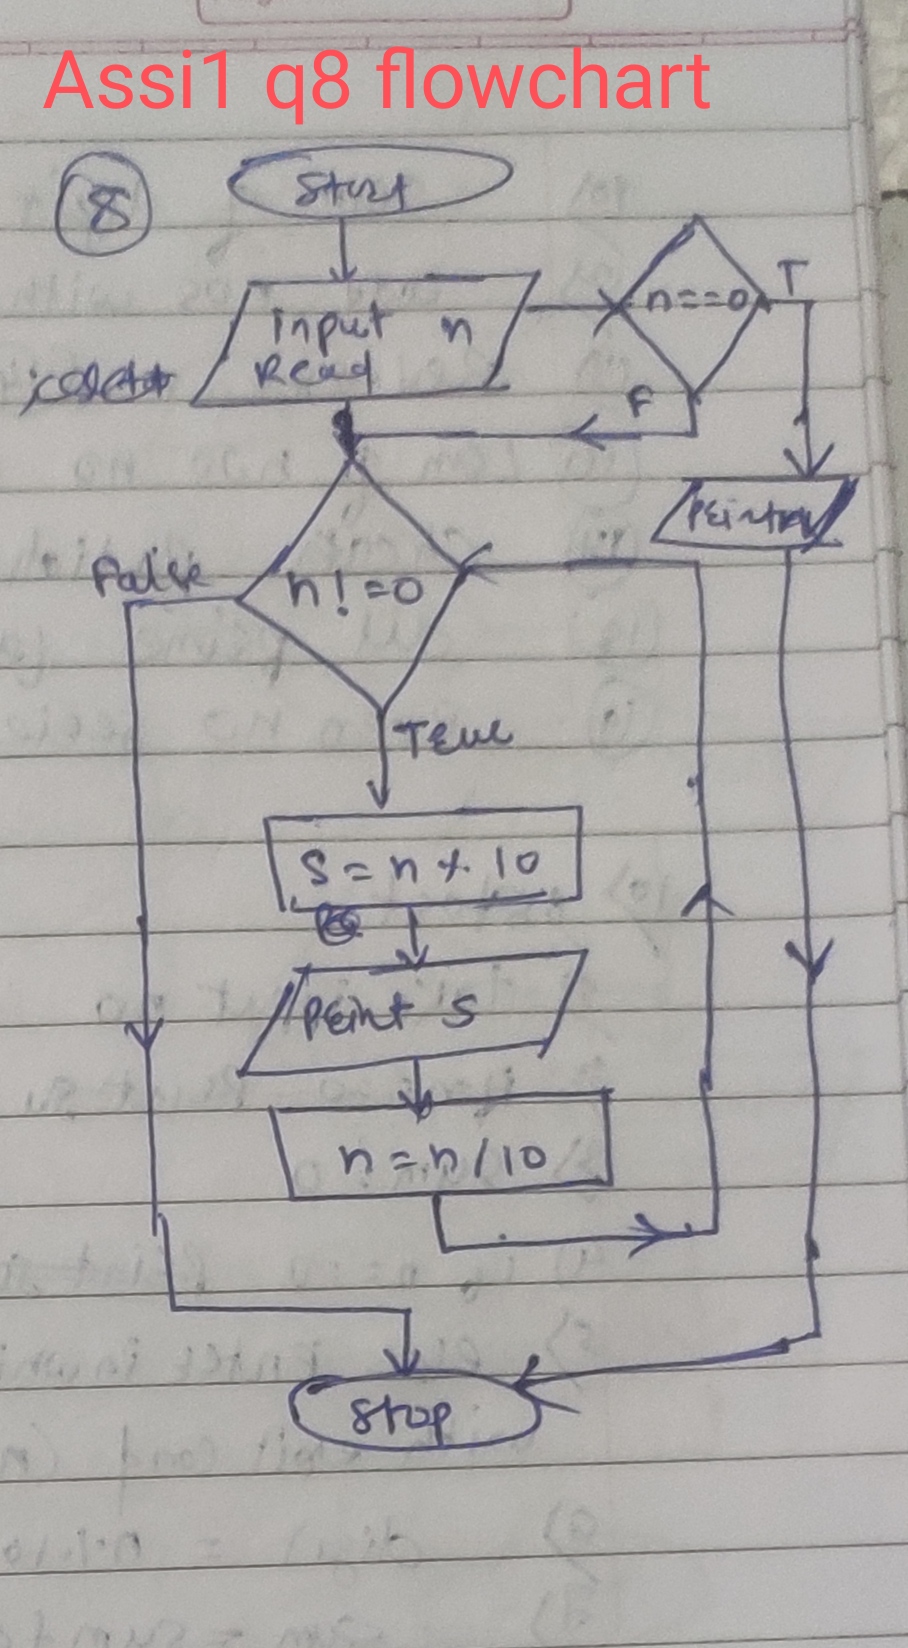 Assi1 q8 flowchart
8
Start
Input n
Read
n==0
T
F
Print n
n!=0
False
True
S = n % 10
Print S
n = n / 10
Stop